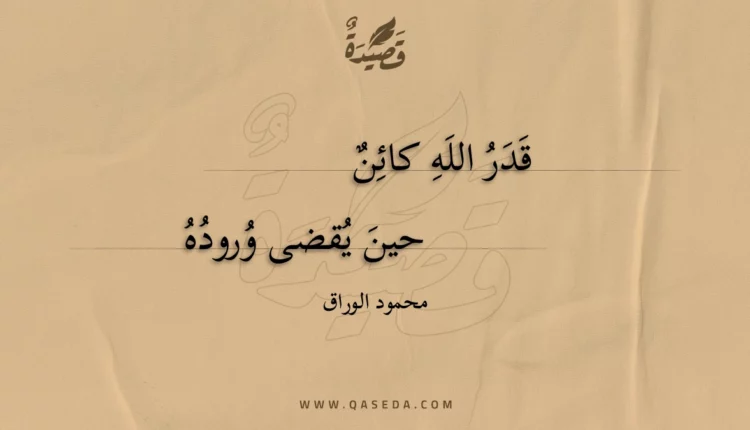 قَصِيْدَةٌ
قَدَرُ اللَهِ كائِنٌ
حينَ يُقضى وُرودُهُ
محمود الوراق
WWW.QASEDA.COM